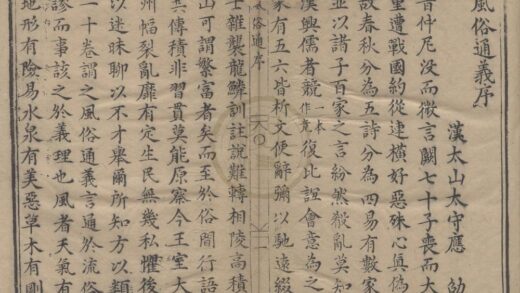 風俗通義序
漢太山太守應劭
昔仲尼没而微言闕七十子喪而大
重遭戰國約從連橫好惡殊心真偽
故春秋分為五詩分為四易有數家
並以諸子百家之言紛然殽亂莫知
漢興儒者競一本作竟復比誼會意為之
家有五六皆析文便辭彌以馳遠綴
俗通序
士雜襲龍鱗訓註說難轉相陵高積
山可謂繁富者矣而至於俗間行語
共傳積非習貫莫能原察今王室大
州幅裂亂靡有定生民無幾私懼後
以迷昧聊以不才舉爾所知方以類
一十卷謂之風俗通義言通於流俗
謬而事該之於義理也風者天氣有
地形有險易水泉有美惡草木有剛